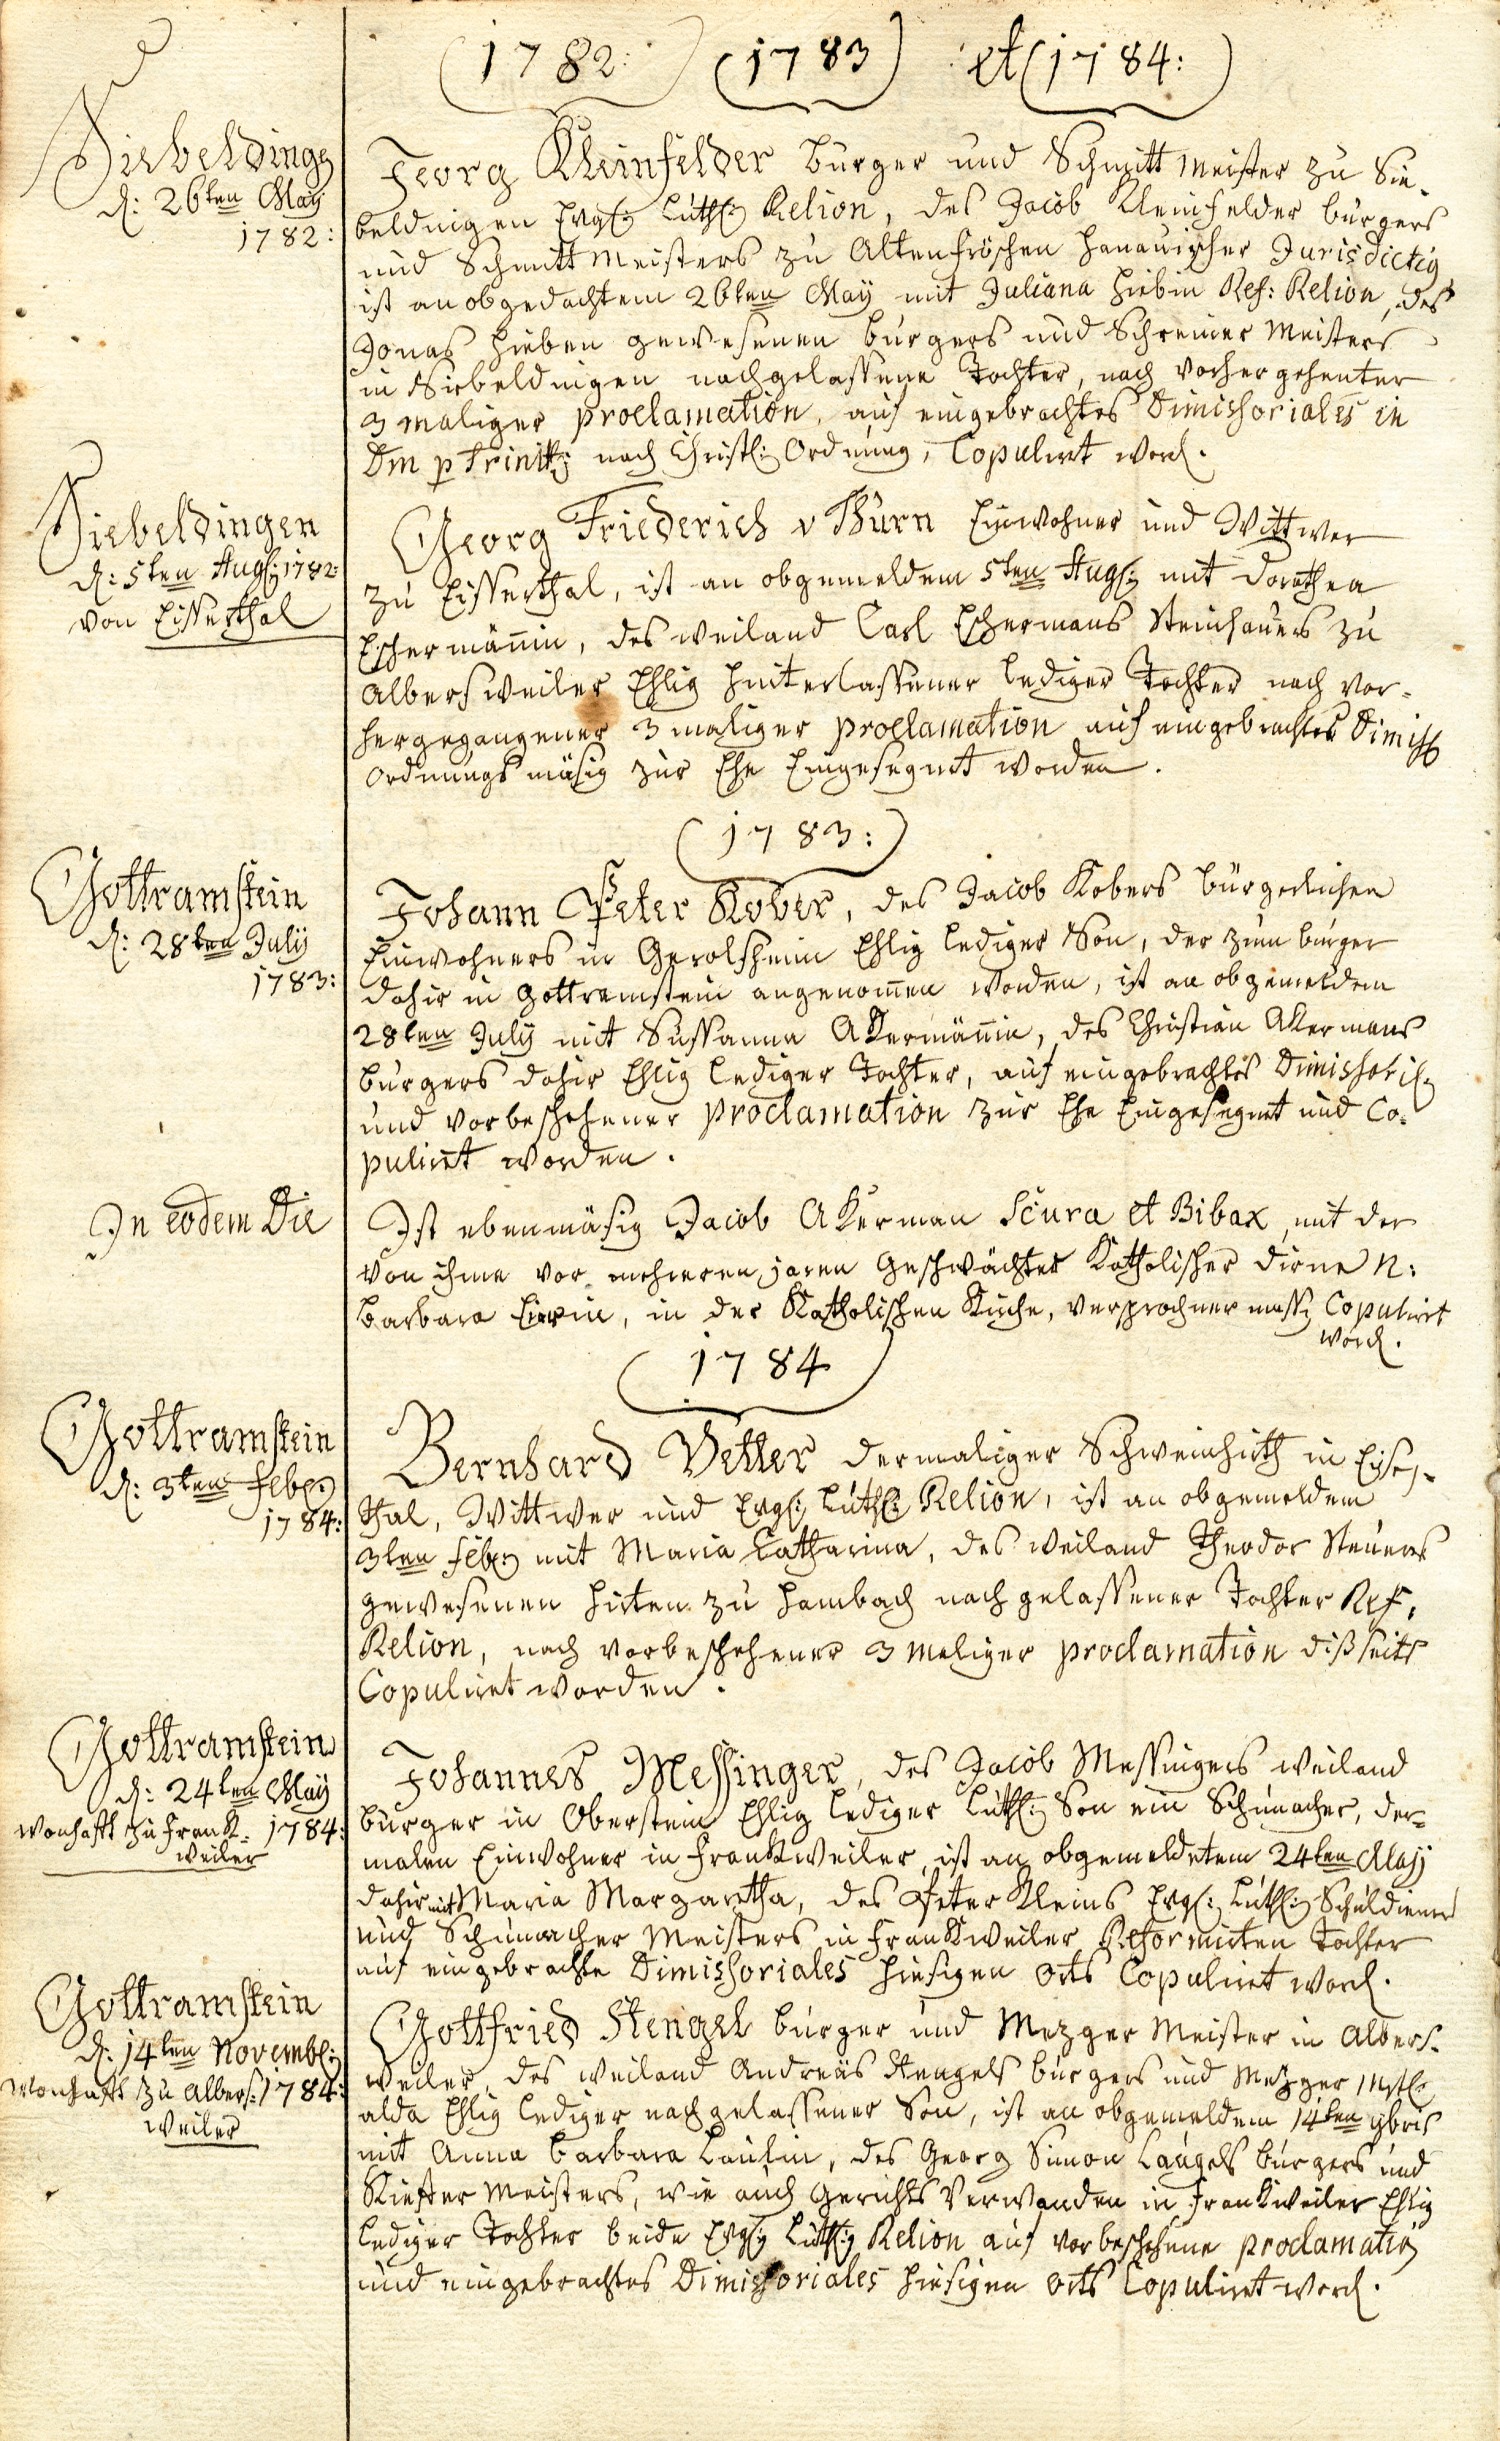 (1782:) (1783) et (1784:)
Siebelding
d: 26ten Maÿ
1782:
Georg Kleinfelder burger und Schmitt Meister zu Sie-
beldingen Evgl: Luth: Relion, des Jacob Kleinfelder burgers
und Schmitt Meisters zu Altenfröschen hanauischer Jurisdictig
ist an obgedachtem 26ten Maÿ mit Juliana hiebin Ref: Relion, des
Jonas hieben gewesenen burgers und Schreiner Meisters
in Siebeldingen nachgelassene Tochter, nach vorhergehenter
3 maliger proclamation, auf eingebrachtes Dimissoriales in
Dm p Trinit: nach Christl: Ordnung, Copulirt word.
Siebeldingen
d: 5ten Aug: 1782:
von Eisserthal
Georg Friederich v Thurn Einwohner und Wittwer
zu Eisserthal, ist an obgemeldem 5ten Aug: mit Dorothea
Eschermänin, des weiland Carl Eschermans Steinhauers zu
Albersweiler Ehlig hinterlassener lediger Tochter nach vor-
hergegangener 3 maliger proclamation auf eingebrachtes Dimiss
Ordnungs mäsig zur Ehe Eingesegnet worden.
(1783:)
Gottramstein
d: 28ten Julÿ
1783:
Johann Peter Kober, des Jacob Kobers bürgerlichen
Einwohners in Gerolsheim Ehlig lediger Son, der zum burger
dahir in Gottramstein angenomen worden, ist an obgemeldem
28ten Julÿ mit Susanna Akermänin, des Christian Akermans
burgers dahir Ehlig lediger Tochter, auf eingebrachtes Dimissoril:
und vorbeschehener proclamation zur Ehe Eingesegnet und Co-
pulirt worden.
In eodem Die
Ist ebenmäsig Jacob Akerman Scura et Bibax, mit der
von ihme vor mehreren jaren Geschwächter Katholischer dirne N:
Barbara, in der Katholischen Kirche, versprochner mass: Copulirt
word.
(1784)
Gottramstein
d: 3ten Feb:
1784:
Bernhard Vetter dermaliger Schweinhirth in Eiser-
thal, Wittwer und Evgl: Luth: Relion, ist an obgemeldem
3ten Feb: mit Maria Catharina, des weiland Theodor Steuers
gewesenen hirten zu hambach nach gelassener Tochter Ref.
Relion, nach vorbeschehener 3 maliger proclamation disseits
Copuliret worden.
Gottramstein
d: 24ten Maÿ
wonhafft zu Frank- 1784:
weiler
Johannes Messinger, des Jacob Messingers weiland
burger in Oberstein Ehlig lediger Luth: Son ein Schumacher, der-
malen Einwohner in Frankweiler, ist an obgemeldetem 24ten Maÿ
dahir mit Maria Margaretha, des Peter Kleins Evgl: Luth: Schuldiener
und Schumacher Meisters in Frankweiler Reformirten Tochter
auf eingebrachte Dimissoriales hiesigen Orts Copuliret word.
Gottramstein
d: 14ten Novemb:
wonhafft zu Albers- 1784:
weiler
Gottfried Stengel burger und Mezger Meister in Albers-
weiler, des weiland Andreas Stengels burgers und Mezger Mstl:
alda Ehlig lediger nachgelassener Son, ist an obgemeldem 14ten 9bris
mit Anna Barbara, des Georg Simon Laugels burgers und
Kiefer Meisters, wie auch Gerichts Verwanden in Frankweiler Ehlig
lediger Tochter beide Evgl: Luth: Relion auf vorbeschehene proclamation
und eingebrachtes Dimissoriales hiesigen Orts Copuliret word.